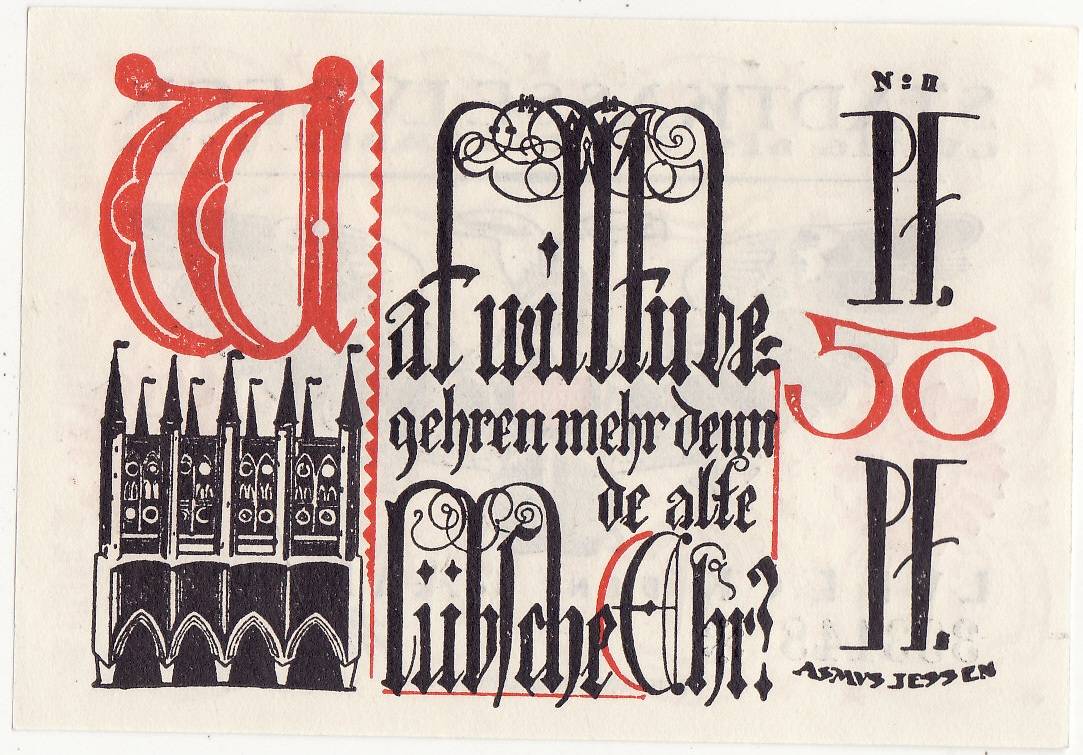 Wat willtu be=
gehren mehr denn
de alte
lübsche Ehr?
No II
Pf.
50
Pf.
ASMVS JESSEN